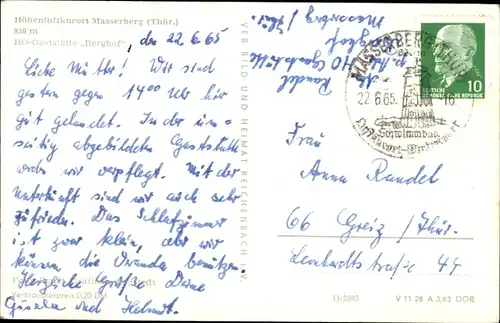 Höhenluftkurort Masserberg (Thür.)
830 m
HO-Gaststätte „Berghof"
, den 22.6.65
Liebe Mutter! Wir sind
gestern gegen 14⁰⁰ Uhr hier
gut gelandet. In der um=
seitig abgebildeten Gaststätte
werden wir verpflegt. Mit der
Unterkunft sind wir auch sehr
zufrieden. Das Schlafzimmer
ist zwar klein, aber wir
können die Veranda benutzen.
Herzliche Grüße Deine
Gisela und Helmut.
Verbraucherpreis 0,20 DM
VEB BILD UND HEIMAT REICHENBACH I. V.
Randel
HO Gaststätte
Berghof
Masserberg / Thür.
MASSERBERG
22.6.65.
16
Schwimmbad
DEUTSCHE
DEMOKRATISCHE REPUBLIK
10
Frau
Anna Randel
66 Greiz / Thür.
Leonhardtstraße 44
11/2980
V 11 28 A 3,63 DDR